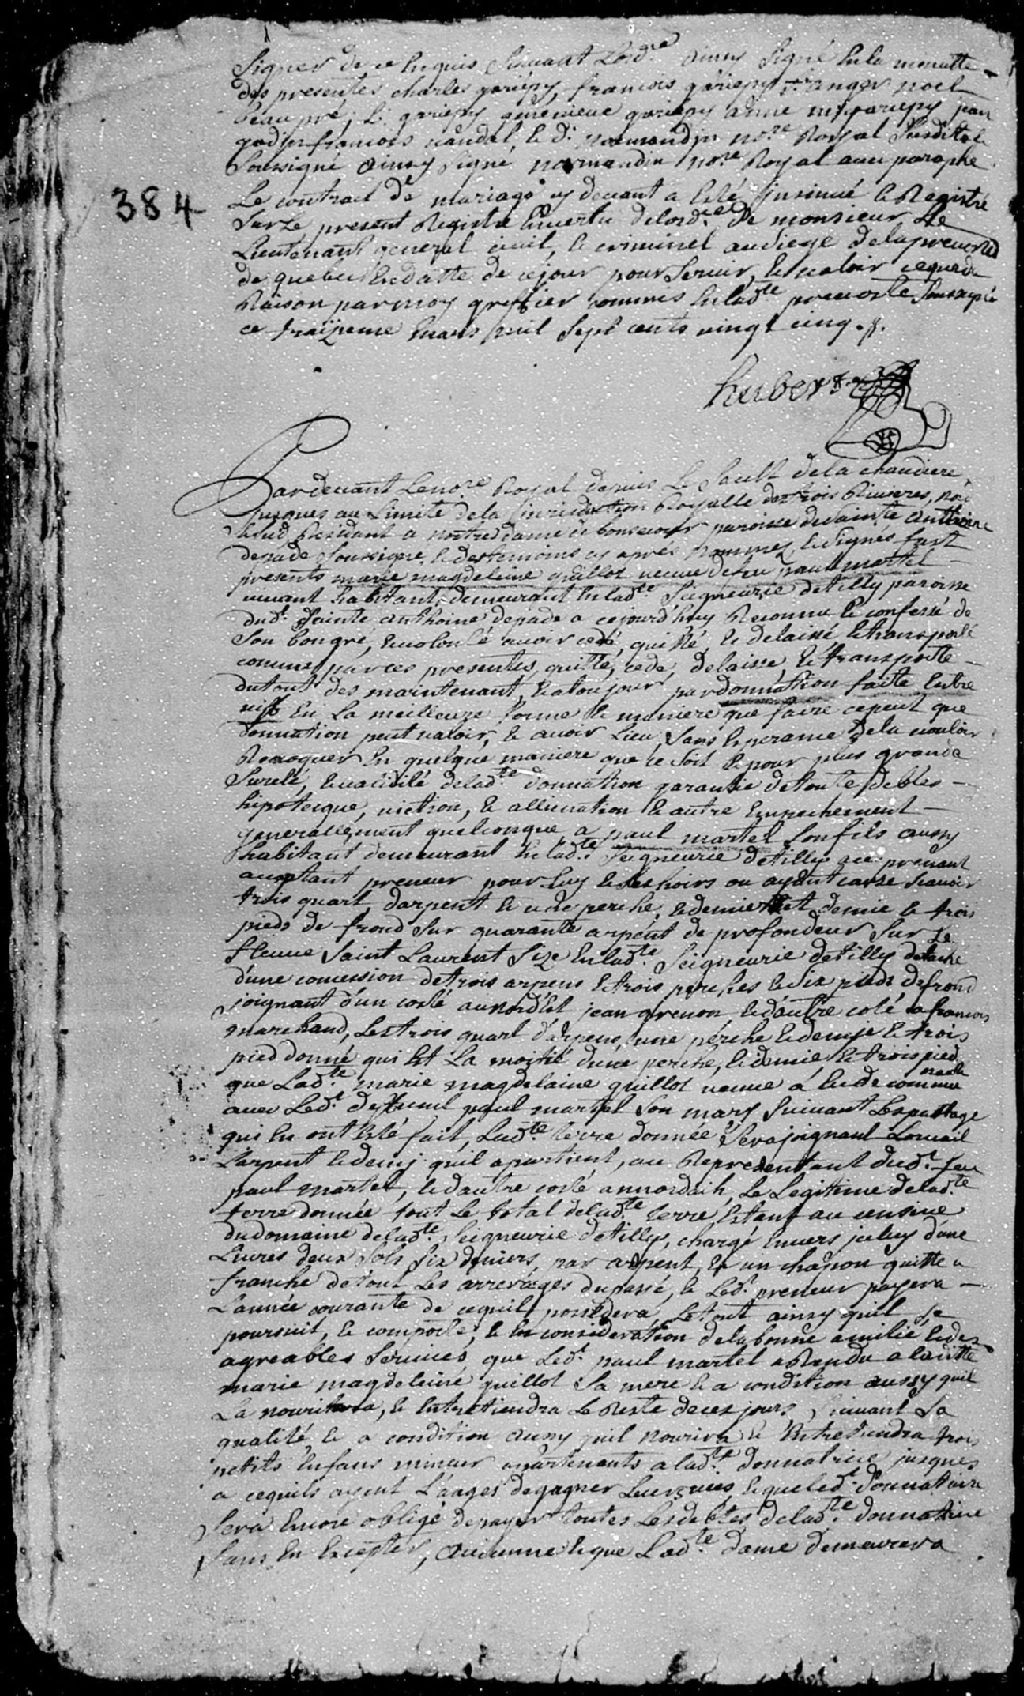 signer de ce Enquis suivant Lord.re ainsy signé En la minutte
des presentes charles gariepy, francois gariepy, ranger noel
beaupré, L. gariepy genevieve gariepy anne m. gariepy jean
godin francois nandal, le d. normandin no.re Royal susdit et
soussigné Ainsy signé normandin no.re Royal avec paraphe
384
Le contrait de mariage cy devant a Esté Insinué et Registré
sur Le present Registre En vertu de lord.ce De monsieur Le
Lieutenant general civil, et criminel au siege de la prevosté
de quebec En datte de ce jour pour servir, et valoir ce que de
Raison par moy greffier commis En lad.te prevosté soussigné
ce traizieme mars mil sept cents vingt cinq.
hubert
Pardevant Le no.re Royal depuis Le sault de la chaudiere
jusques au Limite de la jurisdiction Royalle des trois Rivieres,
sud Residant a nostre dame de bonsecour paroisse de sainte anthoine
depade soussigné et des temoins cy apres nommez et signés fust
presents marie magdeleine guillot veuve de feu paul martel
vivant habitant demeurant En lad.te seigneurie de tilly paroisse
du d. sainte anthoine depade a cejourd'huy Reconnu et confessé de
son bon gré, et volonté avoir cedé, quitté et delaissé et transporté
comme par ces presentes, quitte, cede, delaisse et transporte
du tout des maintenant, et a toujours par donnation faite Entre
vifs En La meilleure forme et maniere que faire ce peut que
donnation peut valoir, et avoir Lieu, sans Esperance de la vouloir
Revoquer En quelque maniere que ce soit et pour plus grande
sureté, et validité de lad.te donnation garantie de toutes debtes
hipotecque, Eviction, et allienation et autre Empechement
generallement quelconque a paul martel son fils aussy
habitant demeurant En lad.te seigneurie de tilly, ce prenant
acceptant preneur pour luy et ses hoirs ou ayant cause scavoir
trois quart, darpent et une perche, et demie et trois
pieds de frond sur quarante arpent de profondeur sur Le
fleuve saint Laurent size En lad.te seigneurie de tilly
d'une concession de trois arpens et trois perches et dix pieds de frond
joignant d'un costé au nordest jean grenon et d'autre coté a francois
marchand, Les trois quart d'arpens, une perche et demie et trois
pied donné qui Est La moitié d'une perche, et demie et trois pied
que Lad.te marie magdelaine guillot veuve a En de commune
avec Led. deffeunt paul martel son mary suivant Le partage
qui En ont Esté fait, Lad.te terre donnée sera joignant
Larpent et demy quil apartient, au Representant dud. feu
paul martel, et d'autre costé au nordest, Le Legitime de lad.te
terre donnée tout Le total de lad.te terre Estant au censive
du domaine de lad.te seigneurie de tilly, chargé Envers jceluy d'une
Livres deux sols six deniers, par arpent, et un chapon quitte et
franche de tout Les arrerages du passé, et Led. preneur payera
L'année courante de ce quil possedera, Le tout ainsy quil se
poursuit, et comporte, et En consideration de la bonne amitié, et des
agreables services que Led. paul martel a Rendu a laditte
marie magdeleine guillot sa mere et a condition aussy quil
La nourrira, et Entretiendra Le Reste de ces jours, suivant sa
qualité et a condition aussy quil nourira et Entretiendra trois
petits Enfans mineur apartenants a lad.te donnatrice jusques
a cequils ayent L'ages de gagner Leur vies, et que led. donnataire
sera Encore obligé de payer toutes Les debtes de lad.te donnatrice
sans En Excepter, aucunne et que Lad.te dame demeurera